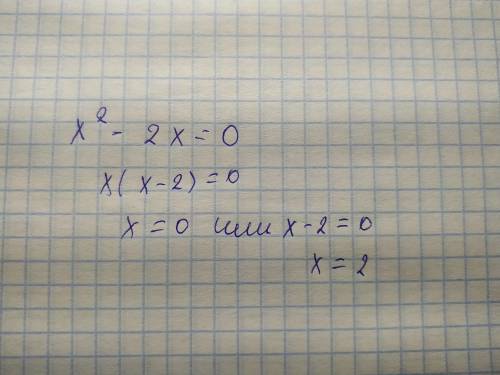 x² - 2x = 0
x(x-2) = 0
x = 0 или x - 2 = 0
x = 2